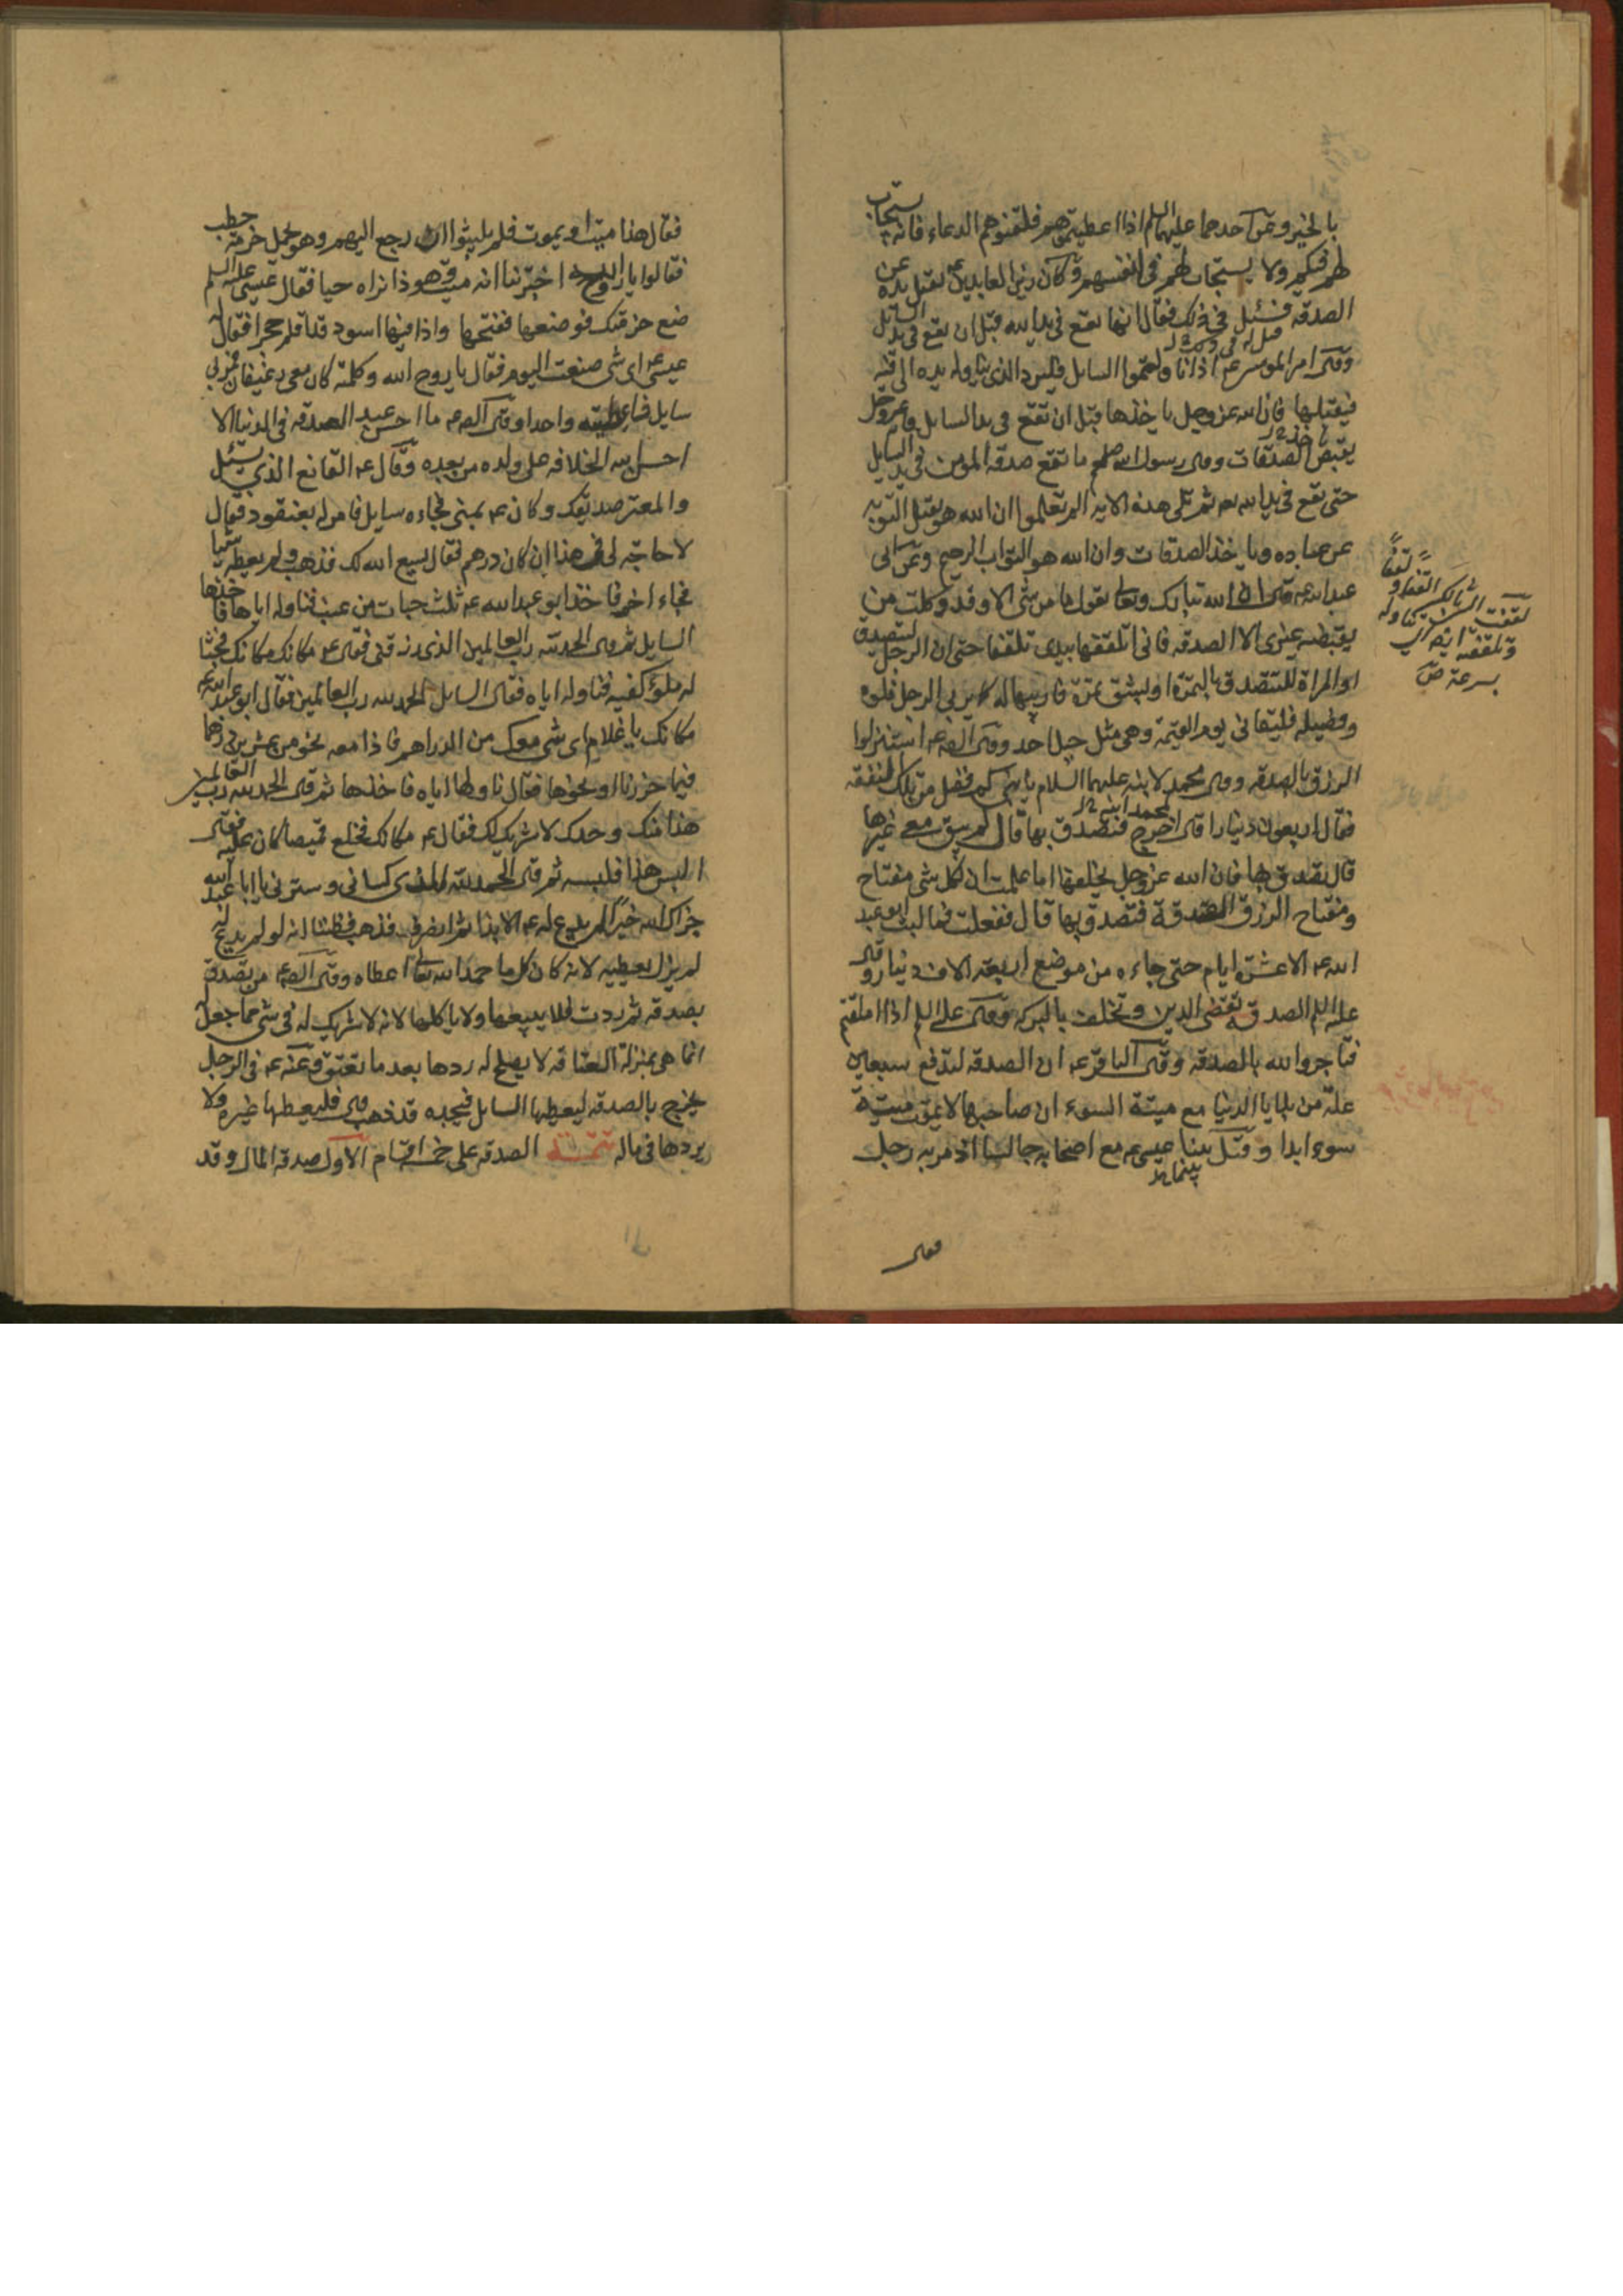 بالخير وعن احدهما عليهما السلم اذا اعطيتموهم فلقنوهم الدعاء فانه يستجاب
لهم فيكم ولا يستجاب لهم في انفسهم وكان زين العابدين ع يقبل يده عن
الصدقة فسئل في ذلك فقال انها تقع في يد الله قبل ان تقع في يد السائل
وقال امير المومنين ع اذا ناولتموا السايل فليرد الذي يناوله يده الى فيه
فيقبلها فان الله عز وجل ياخذها قبل ان تقع في يد السايل فانه عز وجل
يقبض الصدقات وقال رسول الله صلعم ما تقع صدقة المؤمن في يد السايل
حتى تقع في يد الله ثم تلى هذه الاية الم تعلموا ان الله هو يقبل التوبة
عن عباده وياخذ الصدقات وان الله هو التواب الرحيم وعن ابى
عبد الله ع قال ان الله تبارك وتعالى يقول ما من شى الا وقد وكلت من
يقبضه غيرى الا الصدقة فانى اتلقفها بيدى تلقفا حتى ان الرجل ليتصدق
او المراة لتتصدق بالتمرة او بشق تمرة فاربيها له كما يربى الرجل فلوه
وفصيله فيلقانى يوم القيمة وهى مثل جبل احد وقال الص ع استنزلوا
الرزق بالصدقة وقال لمحمد ابنه عليهما السلام يا بنى كم فضل من تلك النفقة
فقال اربعون دينارا قال اخرج فتصدق بها قال لم يبق معى غيرها
قال تصدق بها فان الله عز وجل يخلفها اما علمت ان لكل شى مفتاح
ومفتاح الرزق الصدقة فتصدق بها قال ففعلت فما لبث ابو عبد
الله ع الا عشرة ايام حتى جاءه من موضع اربعة الاف دينار وقال
عليه السلم الصدقة تقضى الدين وتخلف بالبركة وقال على ع السلم اذا املقتم
فتاجروا الله بالصدقة وقال الباقر ع ان الصدقة لتدفع سبعين
علة من بلايا الدنيا مع ميتة السوء ان صاحبها لا يموت ميتة
سوء ابدا وقيل بينا عيسى ع مع اصحابه جالسا اذ مر به رجل
بينما
فقال
لقفت الشى بالكسر القفه لقفا
وتلقفته ايضا اى تناولته
بسرعة ص
فقال هذا ميت او يموت فلم يلبثوا ان رجع اليهم وهو يحمل حزمة حطب
فقالوا يا روح الله اخبرتنا انه ميت وهو ذا نراه حيا فقال عيسى عليه السلم
ضع حزمتك فوضعها ففتحها واذا فيها اسود قد القم حجرا فقال له
عيسى ع اى شى صنعت اليوم فقال يا روح الله وكلمته كان معى رغيفان فمر بى
سايل فاعطيته واحدا وقال الص ع ما احسن عبد الصدقة في الدنيا الا
احسن الله الخلافة على ولده من بعده وقال ع القانع الذى يسئل
والمعتر صديقك وكان ع بمنى فجاءه سايل فامر له بعنقود فقال
لا حاجة لى في هذا ان كان درهم فقال يسع الله لك فذهب ولم يعطه شيا
فجاء اخر فاخذ ابو عبد الله ع ثلث حبات من عنب فناوله اياها فاخذها
السايل ثم قال الحمد لله رب العالمين الذى رزقنى فقال ع مكانك مكانك فحثا
له ملؤ كفيه فناوله اياه فقال السايل الحمد لله رب العالمين فقال ابو عبد الله ع
مكانك يا غلام اى شى معك من الدراهم فاذا معه نحو من عشرين درهما
فيما حزرنا او نحوها فقال ناولها اياه فاخذها ثم قال الحمد لله رب العالمين
هذا منك وحدك لا شريك لك فقال ع مكانك فخلع قميصا كان عليه فقال
البس هذا فلبسه ثم قال الحمد لله الذى كسانى وسترنى يا ابا عبد الله
جزاك الله خيرا لم يدع له ع الا بذا ثم انصرف فذهب فظننا انه لو لم يدع له
لم يزل يعطيه لانه كان كل ما حمد الله تعا اعطاه وقال الص ع من تصدق
بصدقة ثم ردت فلا يبيعها ولا ياكلها لانه لا شريك له في شى مما جعل له
انما هى بمنزلة العتاقة لا يصلح له ردها بعد ما تعتق وعنه ع في الرجل
يخرج بالصدقة ليعطيها السايل فيجده قد ذهب قال فليعطها غيره ولا
يردها في ماله تتمة الصدقة على خمسة اقسام الاول صدقة المال وقد